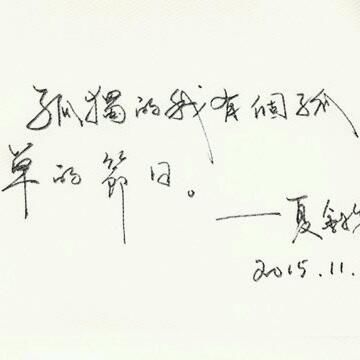 孤獨的我有個孤
單的節日。
——夏
2015.11.